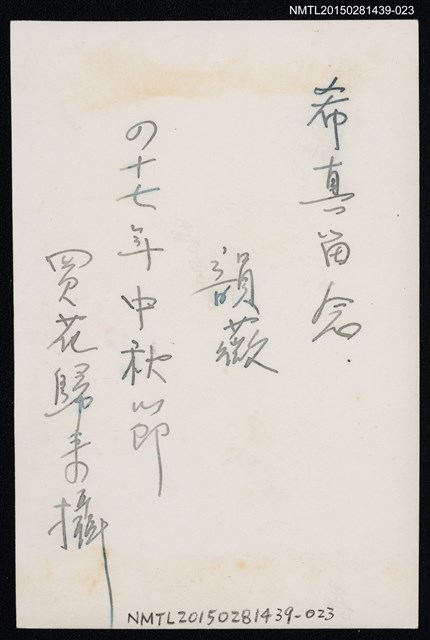 NMTL20150281439-023
希真留念.
韻薇
四十七年中秋節
買花歸來攝
NMTL20150281439-023